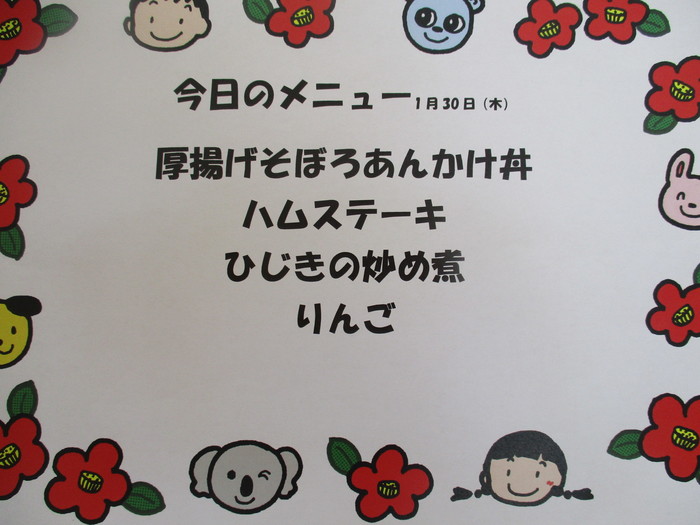 今日のメニュー1月30日(木)
厚揚げそぼろあんかけ丼
ハムステーキ
ひじきの炒め煮
りんご